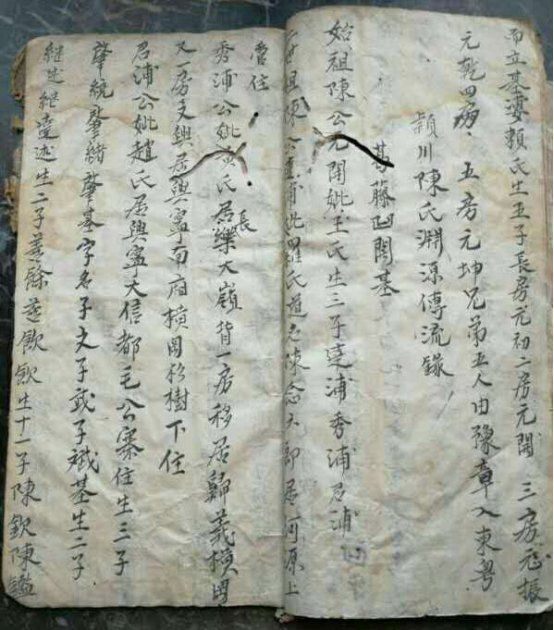 而立基婆賴氏生五子長房元初二房元開三房元振
元乾四房五房元坤兄弟五人由豫章入東粤
潁川陳氏淵源傳流錄
葛藤凹開基
始祖陳公元開妣王氏生三子達浦秀浦君浦
世祖陳公達浦妣羅氏道名陳念大郎居河源上
管住
秀浦公妣黃氏居長樂大嶺背一房移居歸義橫岡
又一房文興居興寧南廂橫岡杉樹下住
君浦公妣趙氏居興寧大信都毛公寨住生三子
肇統肇緒肇基字名子文子武子斌基生二子
繼述繼達述生二子善餘慈飲飲生十一子陳欽陳鑑